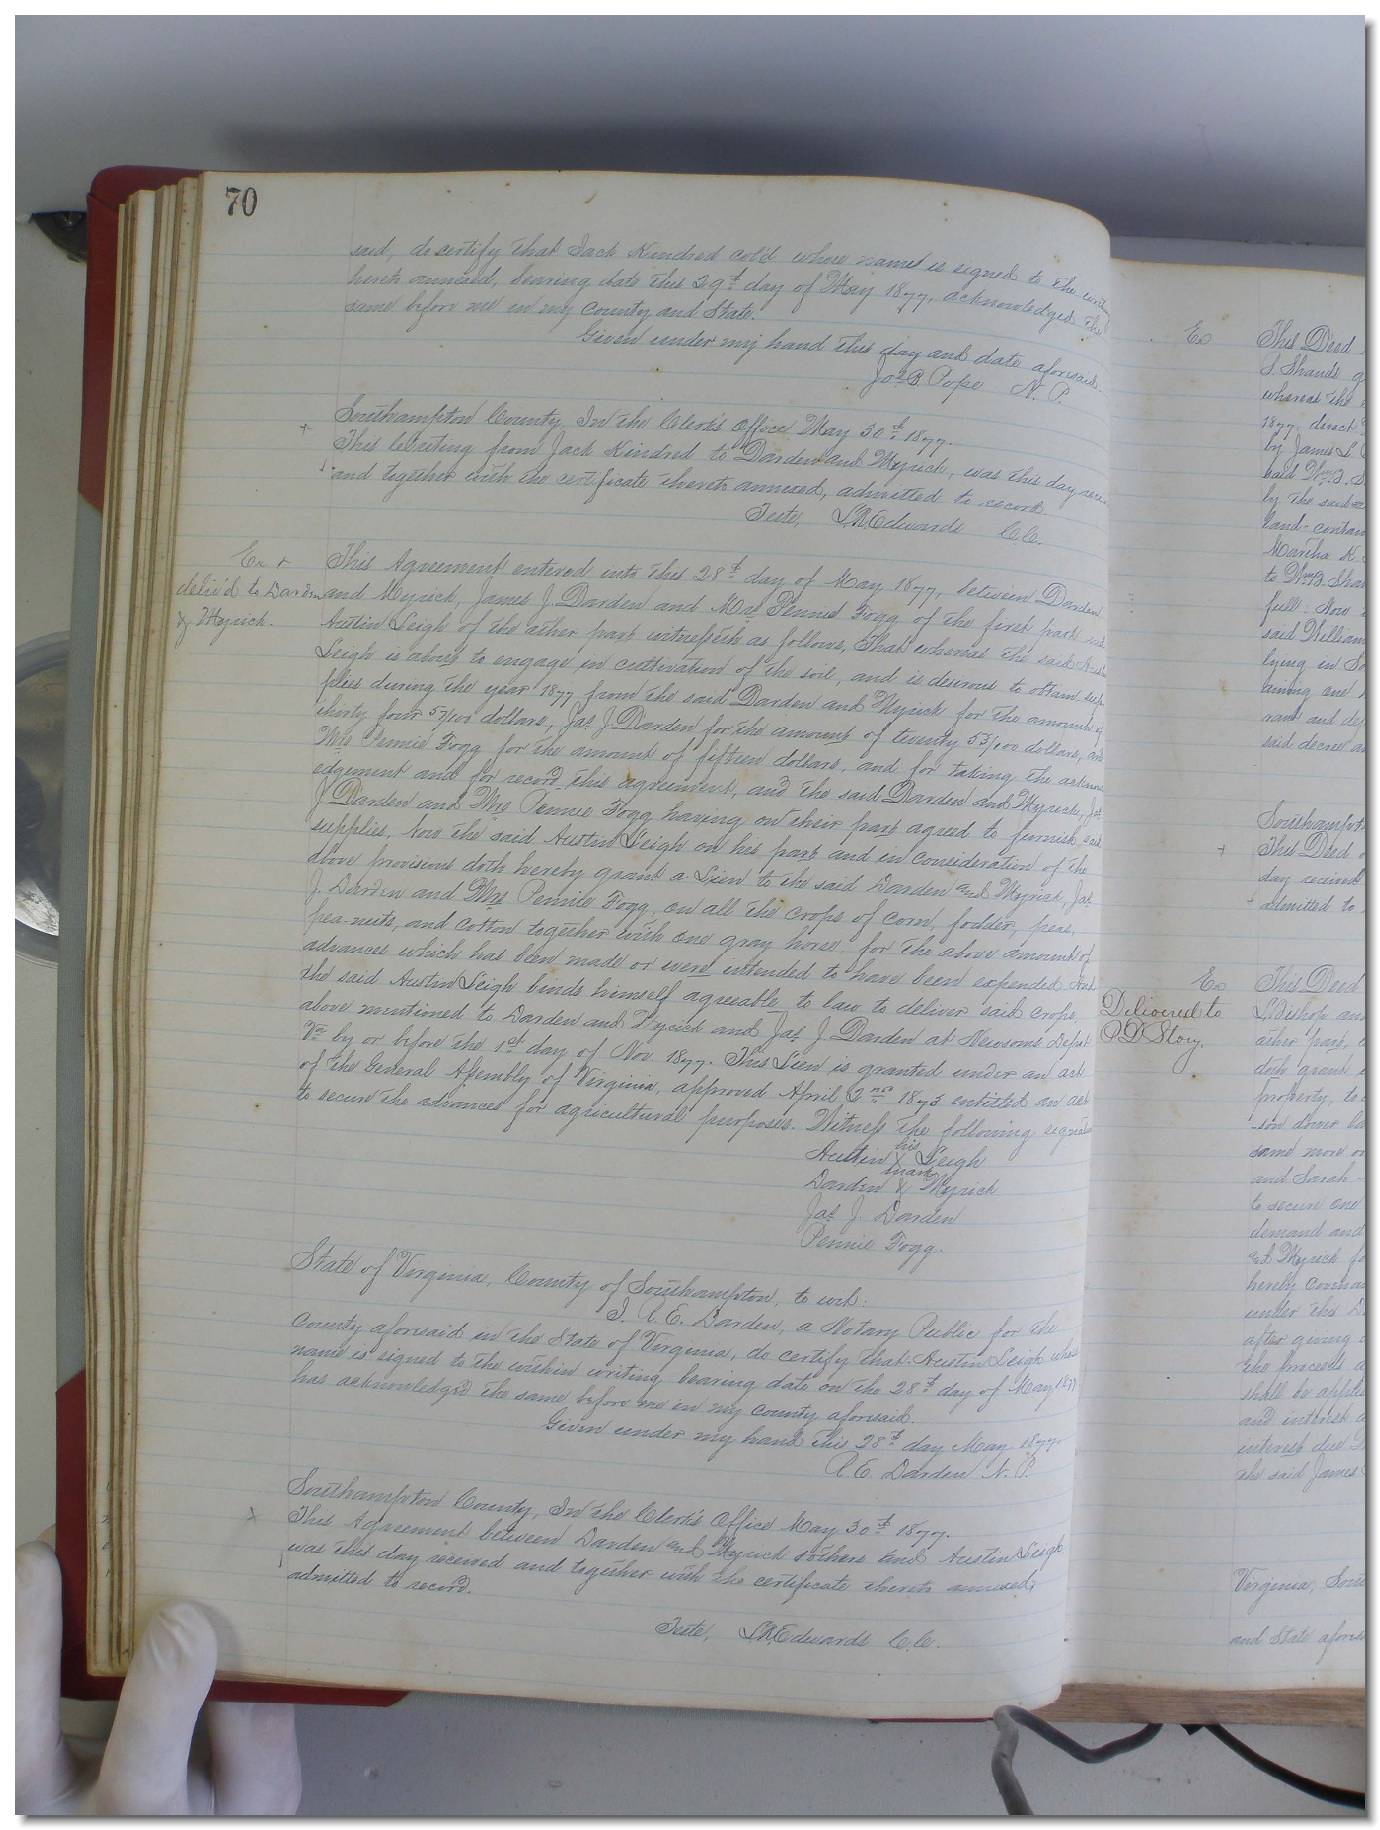 70
said, do certify that Jack Kindred col'd whose name is signed to the
hereto annexed, bearing date this 29th day of May 1877, acknowledged the
same before me in my County and State.
Given under my hand this day and date aforesaid.
Jos B Pope N. P.
Southampton County, In the Clerk's Office May 30th 1877.
This Writing from Jack Kindred to Darden and Myrick, was this day
and together with the certificate thereto annexed, admitted to record
Teste, L.R. Edwards C.C.
Ex +
deliv'd to Darden
& Myrick.
This Agreement entered into this 28th day of May 1877, between Darden
and Myrick, James J. Darden and Mrs Pennie Fogg of the first part and
Austin Leigh of the other part witnesseth as follows, That whereas the said
Leigh is about to engage in cultivation of the soil, and is desirous to obtain sup
plies during the year 1877 from the said Darden and Myrick for the amount of
thirty four 57/100 dollars, Jas J. Darden for the amount of twenty 53/100 dollars, and
Mrs Pennie Fogg for the amount of fifteen dollars, and for taking the
edgement and for record this agreement, and the said Darden and Myrick, Jas
J Darden and Mrs Pennie Fogg having on their part agreed to furnish said
supplies, Now the said Austin Leigh on his part and in consideration of the
above provisions doth hereby grant a Lien to the said Darden and Myrick, Jas
J. Darden and Mrs Pennie Fogg, on all the crops of corn, fodder, peas,
pea-nuts, and cotton together with one gray horse for the above amount of
advances which has been made or were intended to have been expended And
the said Austin Leigh binds himself agreeable to law to deliver said crops
above mentioned to Darden and Myrick and Jas J. Darden at Newsoms Depot
Va by or before the 1st day of Nov. 1877. This Lien is granted under an act
of the General Assembly of Virginia, approved April 2nd 1873 entitled an act
to secure the advances for agricultural purposes. Witness the following
his
Austin X Leigh
mark
Darden & Myrick
Jas J. Darden
Pennie Fogg.
State of Virginia, County of Southampton, to wit:
I. R. E. Darden, a Notary Public for the
County aforesaid in the State of Virginia, do certify that Austin Leigh whose
name is signed to the within writing bearing date on the 28th day of May 1877
has acknowledg'd the same before me in my County aforesaid.
Given under my hand this 28th day May 1877
R. E. Darden N. P.
Southampton County, In the Clerk's Office May 30th 1877.
This Agreement between Darden and Myrick & others and Austin Leigh
was this day received and together with the certificate thereto annexed,
admitted to record.
Teste, L.R. Edwards C.C.
Ex
This Deed
whereas the
1877, direct
by James L.
by the said
Martha
full. Now
said William
lying in
said decree
Southampton
+ This Deed
day received
admitted to
Ex
Delivered to
P D Story.
This Deed
Bishop and
other part,
doth grant
property, to
same more or
and Sarah
to secure one
demand and
and Myrick
under the
after giving
the proceeds
shall be
and interest
interest due
the said James
Virginia,
and State